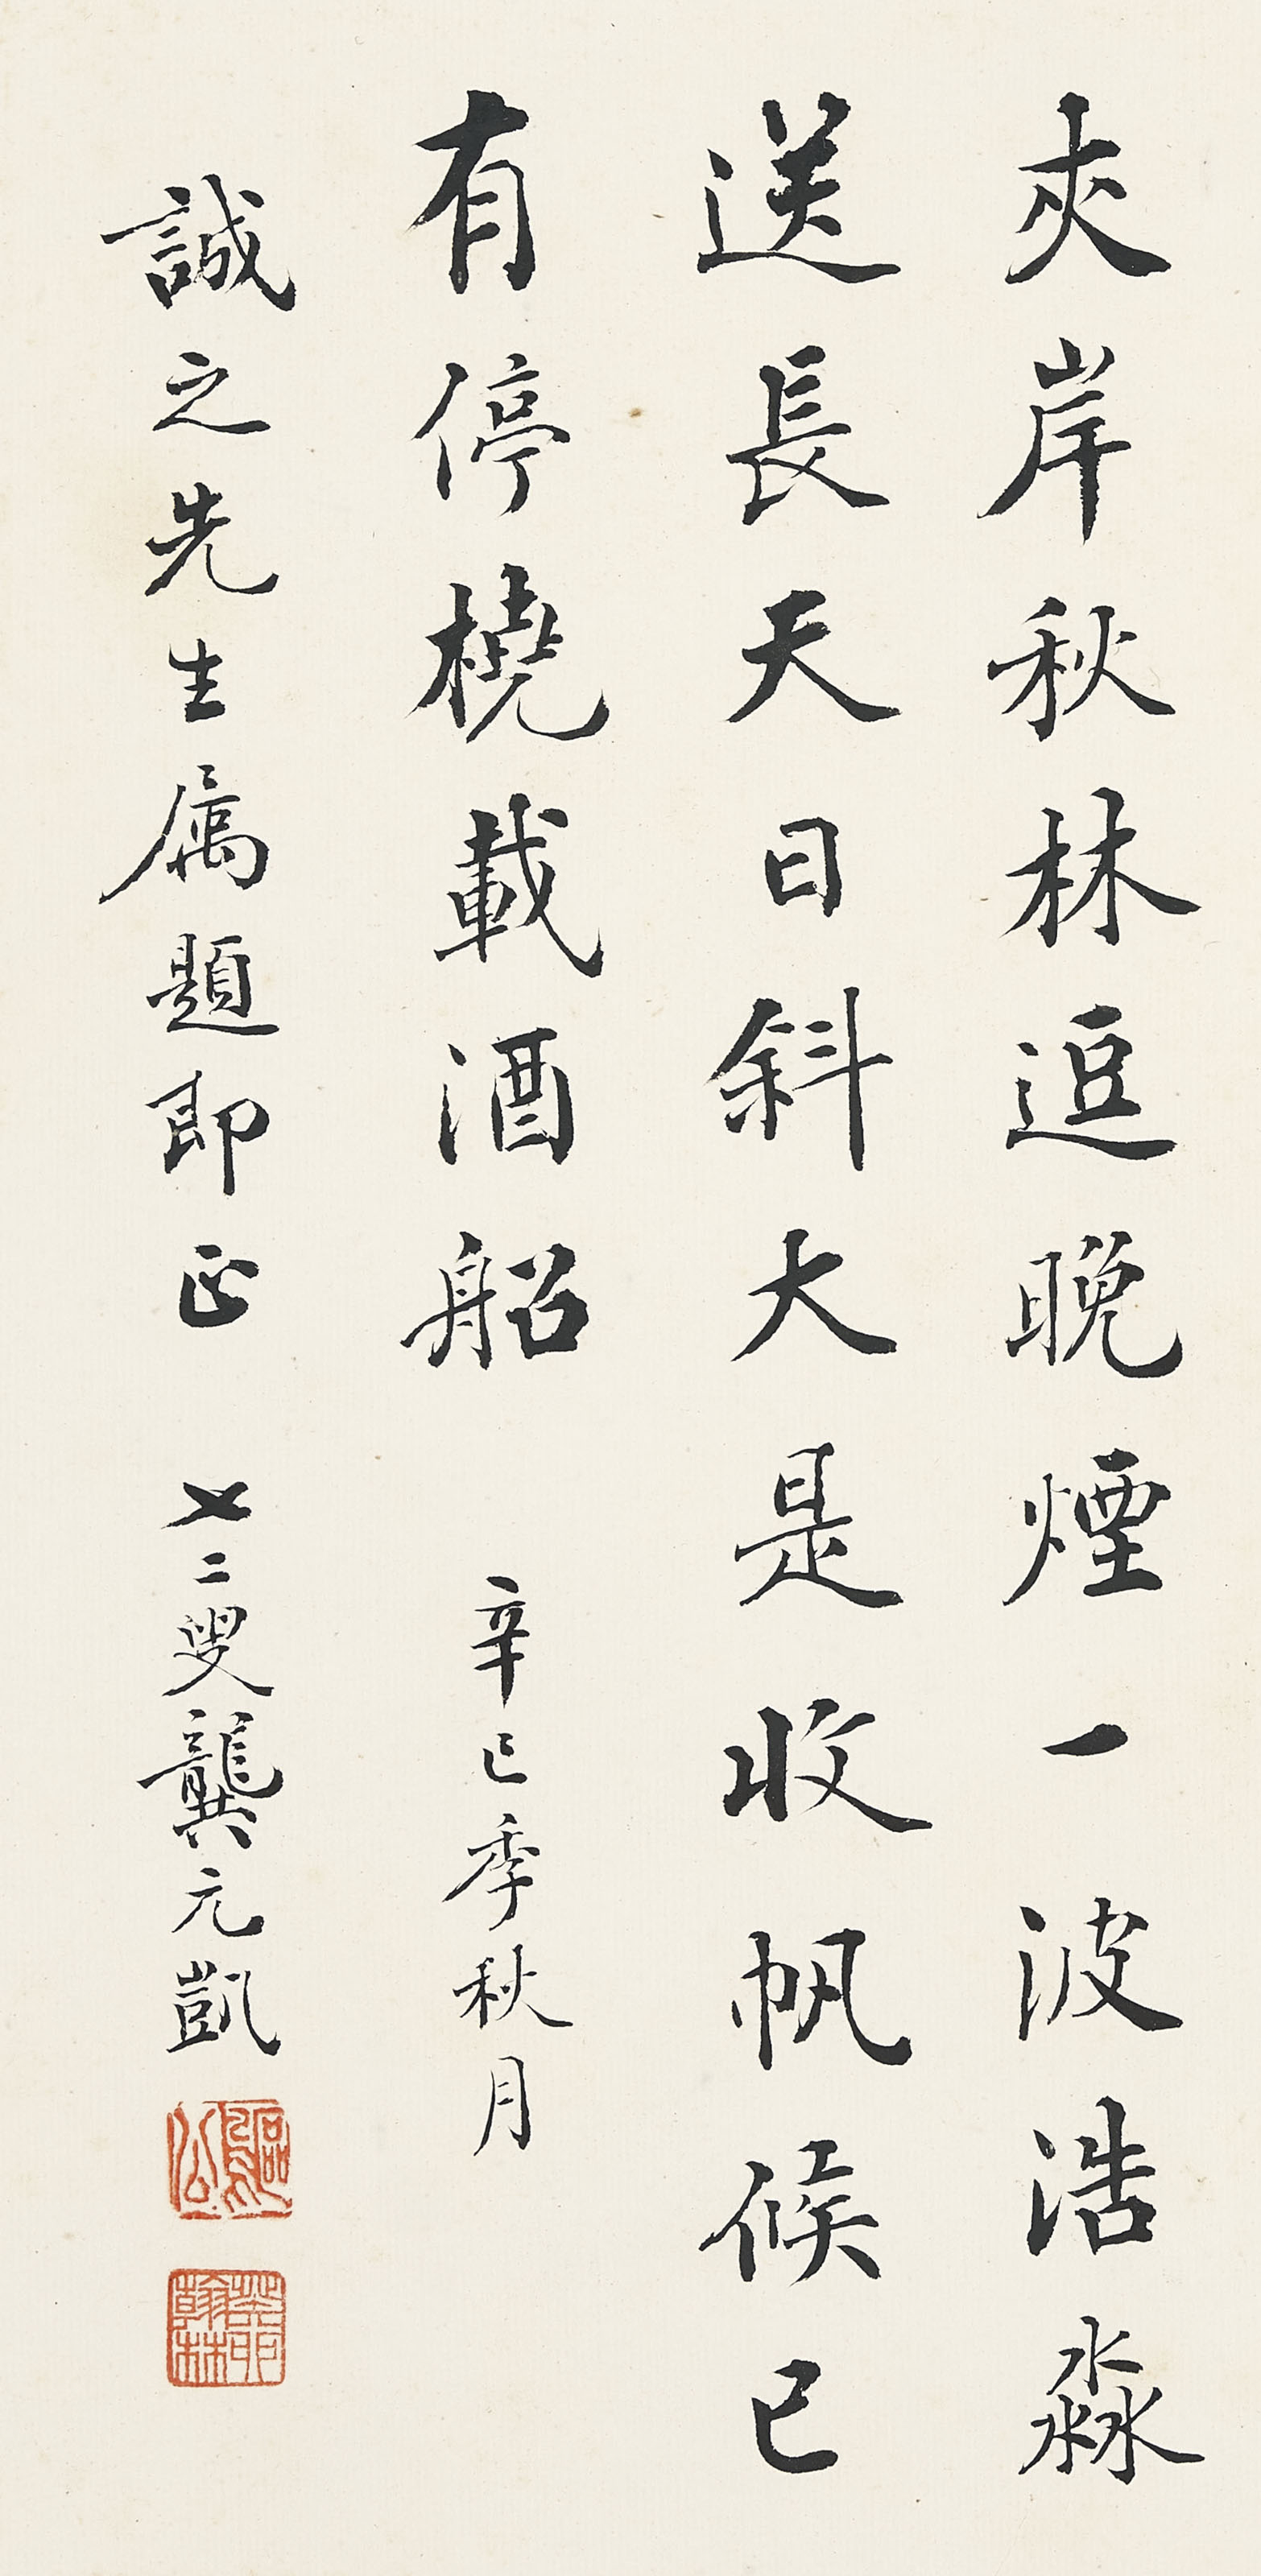 夾岸秋林逗晚煙一波浩淼
送長天日斜大是收帆候已
有停橈載酒船 辛巳季秋月
誠之先生属題即正 七二叟龔元凱
癸卯翰林